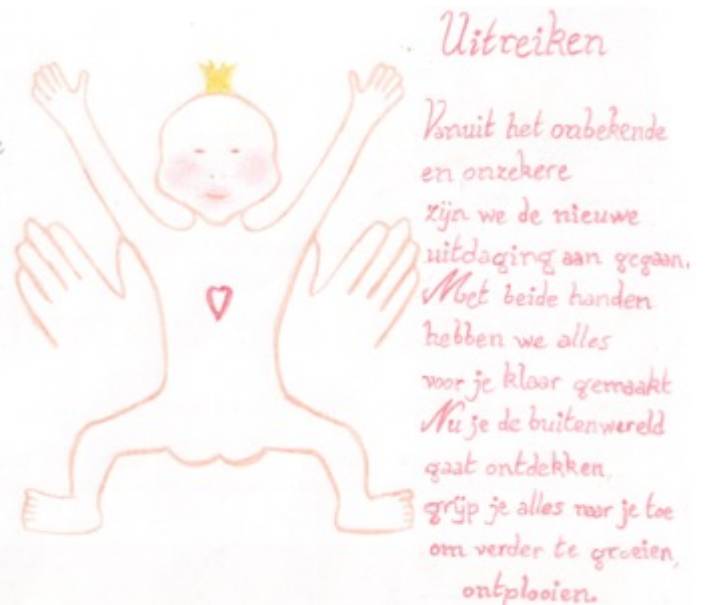 Uitreiken
Vanuit het onbekende
en onzekere
zijn we de nieuwe
uitdaging aan gegaan.
Met beide handen
hebben we alles
voor je klaar gemaakt
Nu je de buitenwereld
gaat ontdekken,
grijp je alles naar je toe
om verder te groeien,
ontplooien.